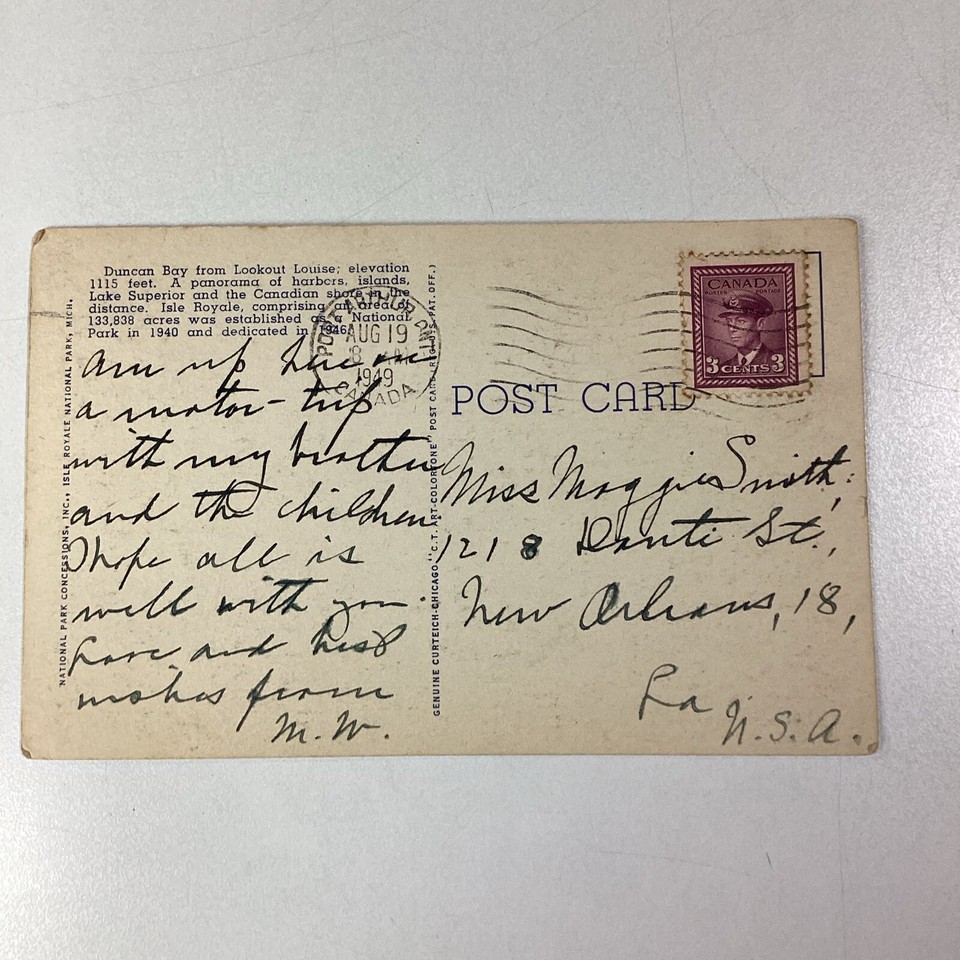 Duncan Bay from Lookout Louise; elevation
1115 feet. A panorama of harbors, islands,
Lake Superior and the Canadian shore in the
distance. Isle Royale, comprising an area of
133,838 acres was established as a National
Park in 1940 and dedicated in 1946.
Am up here on
a motor-trip
with my brother
and the children.
I hope all is
well with you.
Love and best
wishes from
M.W.
NATIONAL PARK CONCESSIONS, INC., ISLE ROYALE NATIONAL PARK, MICH.
GENUINE CURTEICH-CHICAGO "C.T. ART-COLORTONE" POST CARD (REG. U.S. PAT. OFF.)
PORT ARTHUR
AUG 19
8 AM
1949
CANADA
POST CARD
CANADA
POSTES POSTAGE
3 CENTS 3
Miss Maggie Smith,
1218 Danti St.,
New Orleans, 18,
La
U.S.A.